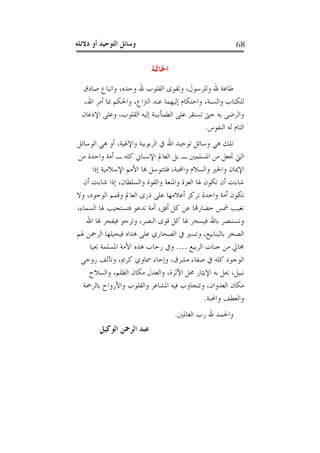 68 وسائل التوحيد أو دلائله
الخاتمة
طاعة لله وللرسول، وتقوى القلوب لله وحده، واتباع صادق
للكتاب والسنة، واحتكام إليهما عند النزاع، والحكم بما أمر الله،
والرضى به حتى تستقر على الطمأنينة إليه القلوب، وعلى الإذعان
التام له النفوس.
تلك هي وسائل توحيد الله في الربوبية والإلهية، أو هي الوسائل
التي تجعل من المسلمين ــ بل العالم الإنساني كله ــ أمة واحدة من
الإيمان والخير والسلام والمحبة، فلتتوسل بها الأمم الإسلامية إذا
شاءت أن تكون لها العزة والمنعة والقوة والسلطان، إذا شاءت أن
تكون أمة واحدة تركز أعلامها على ذرى العالم وقمم الوجود، ولا
تغيب شمس حضارتها عن كل أفق، أمة تدعو فتستجيب لها السماء،
وتستنصر بالله فيسخر لها كل قوى النصر، وترجو فيفجر لها الله
الصخر بالينابيع، وتسير في الصحاري على هداه فيحيلها الرحمن لهم
مجالي من جنات الربيع .... وفي رحاب هذه الأمة المسلمة يحيا
الوجود كله في صفاء مشرق، وإخاء سماوي كريم، وتآلف روحي
نبيل، يحل به الإيثار محل الأثرة، والعدل مكان الظلم، والسلاح
مكان العدوان، وتتجاوب فيه المشاعر والقلوب والأرواح بالرحمة
والعطف والمحبة.
والحمد لله رب العالمين.
عبد الرحمن الوكيل